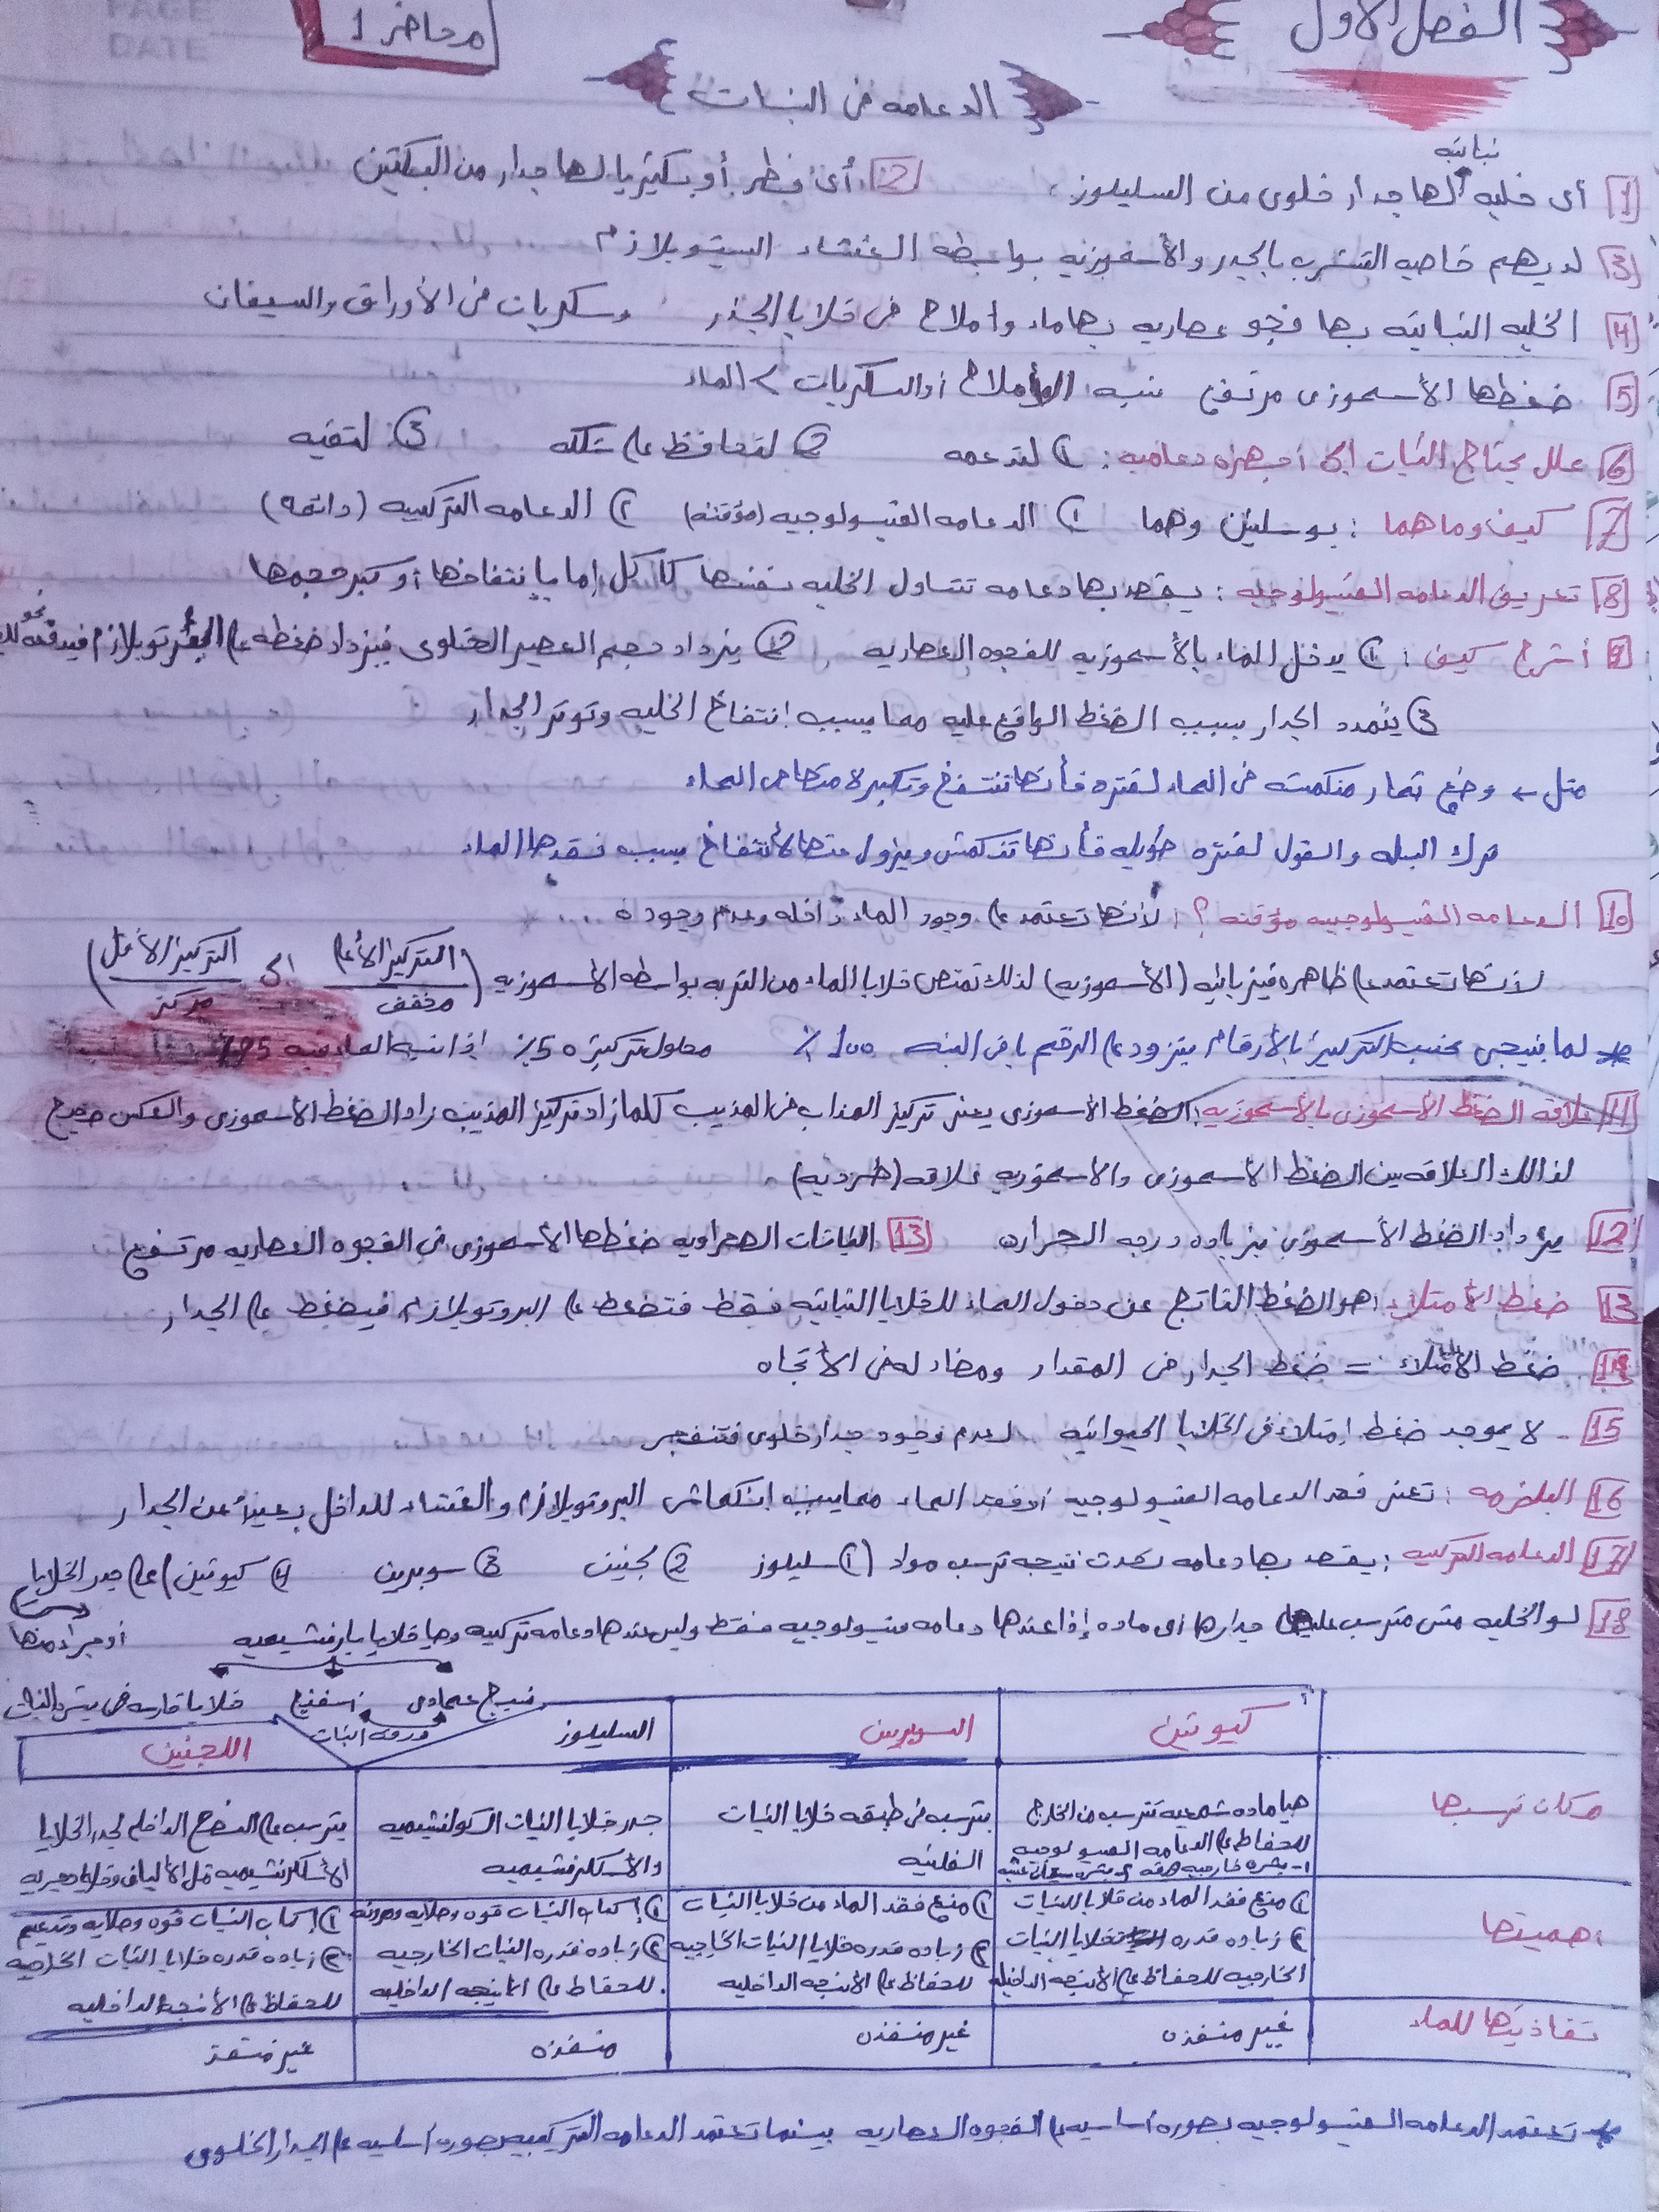 PAGE
DATE
محاضر 1
الفصل الأول
الدعامه فى النبات
نباتيه
1 أى خليه لها جدار خلوى من السليلوز
2 أى فطر أو بكتيريا لها جدار من البكتين
3 لديهم خاصيه التشرب بالجدر والأسموزيه بواسطه الغشاء السيتوبلازم
4 الخليه النباتيه بها فجو عصاريه بها ماء وأملاح فى خلايا الجذر وسكريات فى الأوراق والسيقان
5 ضغطها الأسموزى مرتفع نسبه الأملاح أو السكريات > الماء
6 علل يحتاج النبات إلى أجهزه دعاميه: ① لتدعمه ② لتحافظ على شكله ③ لتقيه
7 كيف وما هما: بوسلتين وهما ① الدعامه الفسيولوجيه (مؤقته) ② الدعامه التركيبيه (دائمه)
8 تعريف الدعامه الفسيولوجيه: يقصد بها دعامه تتناول الخليه نفسها ككل إما بإنتفاخها أو كبر حجمها
9 أشرح كيف: ① يدخل الماء بالأسموزيه للفجوه العصاريه ② يزداد حجم العصير الخلوى فيزداد ضغطه على البروتوبلازم فيدفعه نحو
③ يتمدد الجدار بسبب الضغط الواقع عليه مما يسبب إنتفاخ الخليه وتوتر الجدار
مثل ← وضع ثمار منكمشه فى الماء لفتره فأنها تنتفخ وتكبر لامتصاص الماء
ترك البسله والفول لفتره طويله فأنها تنكمش ويزول عنها الأنتفاخ بسبب فقدها الماء
10 الدعامه الفسيولوجيه مؤقته؟: لأنها تعتمد على وجود الماء داخله وعدم وجوده ...
لأنها تعتمد على ظاهره فيزيائيه (الأسموزيه) لذلك تمتص خلايا الماء من التربه بواسطه الأسموزيه (التركيز الأعلى مخفف إلى التركيز الأقل مركز)
* لما ييجى تركيز بالأرقام على الرقم باقى النسبه 100٪ محلول تركيزه 5٪ إذا نسبه الماء فيه 95٪
11 علاقه الضغط الأسموزى بالأسموزيه: الضغط الأسموزى يعنى تركيز المذاب فى المذيب كلما زاد تركيز المذيب زاد الضغط الأسموزى والعكس صحيح
لذالك العلاقه بين الضغط الأسموزى والاسموزيه علاقه (طرديه)
12 يزداد الضغط الأسموزى بزياده درجه الحراره
13 النباتات الصحراويه ضغطها الأسموزى فى الفجوه العصاريه مرتفع
13 ضغط الأمتلاء: هو الضغط الناتج عن دخول الماء للخلايا النباتيه فقط فتضغط على البروتوبلازم فيضغط على الجدار
14 ضغط الامتلاء = ضغط الجدار فى المقدار ومضاد له فى الأتجاه
15 - لا يوجد ضغط إمتلاء فى الخلايا الحيوانيه لعدم وجود جدار خلوى فتنفجر
16 البلزمه: تعنى فقد الدعامه الفسيولوجيه أو فقد الماء مما يسبب إنكماش البروتوبلازم والغشاء للداخل بعيداً عن الجدار
17 الدعامه التركيبيه: يقصد بها دعامه تحدث نتيجه ترسب مواد (① سليلوز ② لجنين ③ سوبرين ④ كيوتين) على جدر الخلايا
أو جزء منها
18 لو الخليه مش مترسب على جدارها أى ماده إذا عندها دعامه فسيولوجيه فقط وليس عندها دعامه تركيبيه وهيا خلايا بارنشيميه
نسيج عمادى إسفنجى خلايا قاره فى
ورقه النبات
كيوتين السوبرين السليلوز اللجنين
مكان ترسبها
هيا ماده شمعيه تترسب من الخارج للحفاظ على الدعامه الفسيولوجيه
1- بشره خارجيه
يترسب فى طبقه خلايا النبات الفلينيه
جدر خلايا النبات الكولنشيميه والأسكلرنشيميه
يترسب على السطح الداخلى لجدر الخلايا الأسكلرنشيميه مثل الألياف وخلايا حجريه
أهميتها
① منع فقد الماء من خلايا النبات
② زياده قدره خلايا النبات الخارجيه للحفاظ على الأنسجه الداخليه
① منع فقد الماء من خلايا النبات
② زياده قدره خلايا النبات الخارجيه للحفاظ على الأنسجه الداخليه
① إكساب النبات قوه وصلابه ومرونه
② زياده قدره النبات الخارجيه للحفاظ على الأنسجه الداخليه
① إكساب النبات قوه وصلابه وتدعيم
② زياده قدره خلايا النبات الخارجيه للحفاظ على الأنسجه الداخليه
نفاذيتها للماء
غيير منفذه غير منفذه منفذه غير منفذ
* تعتمد الدعامه الفسيولوجيه بصوره أساسيه على الفجوه العصاريه بينما تعتمد الدعامه التركيبيه بصوره أساسيه على الجدار الخلوى